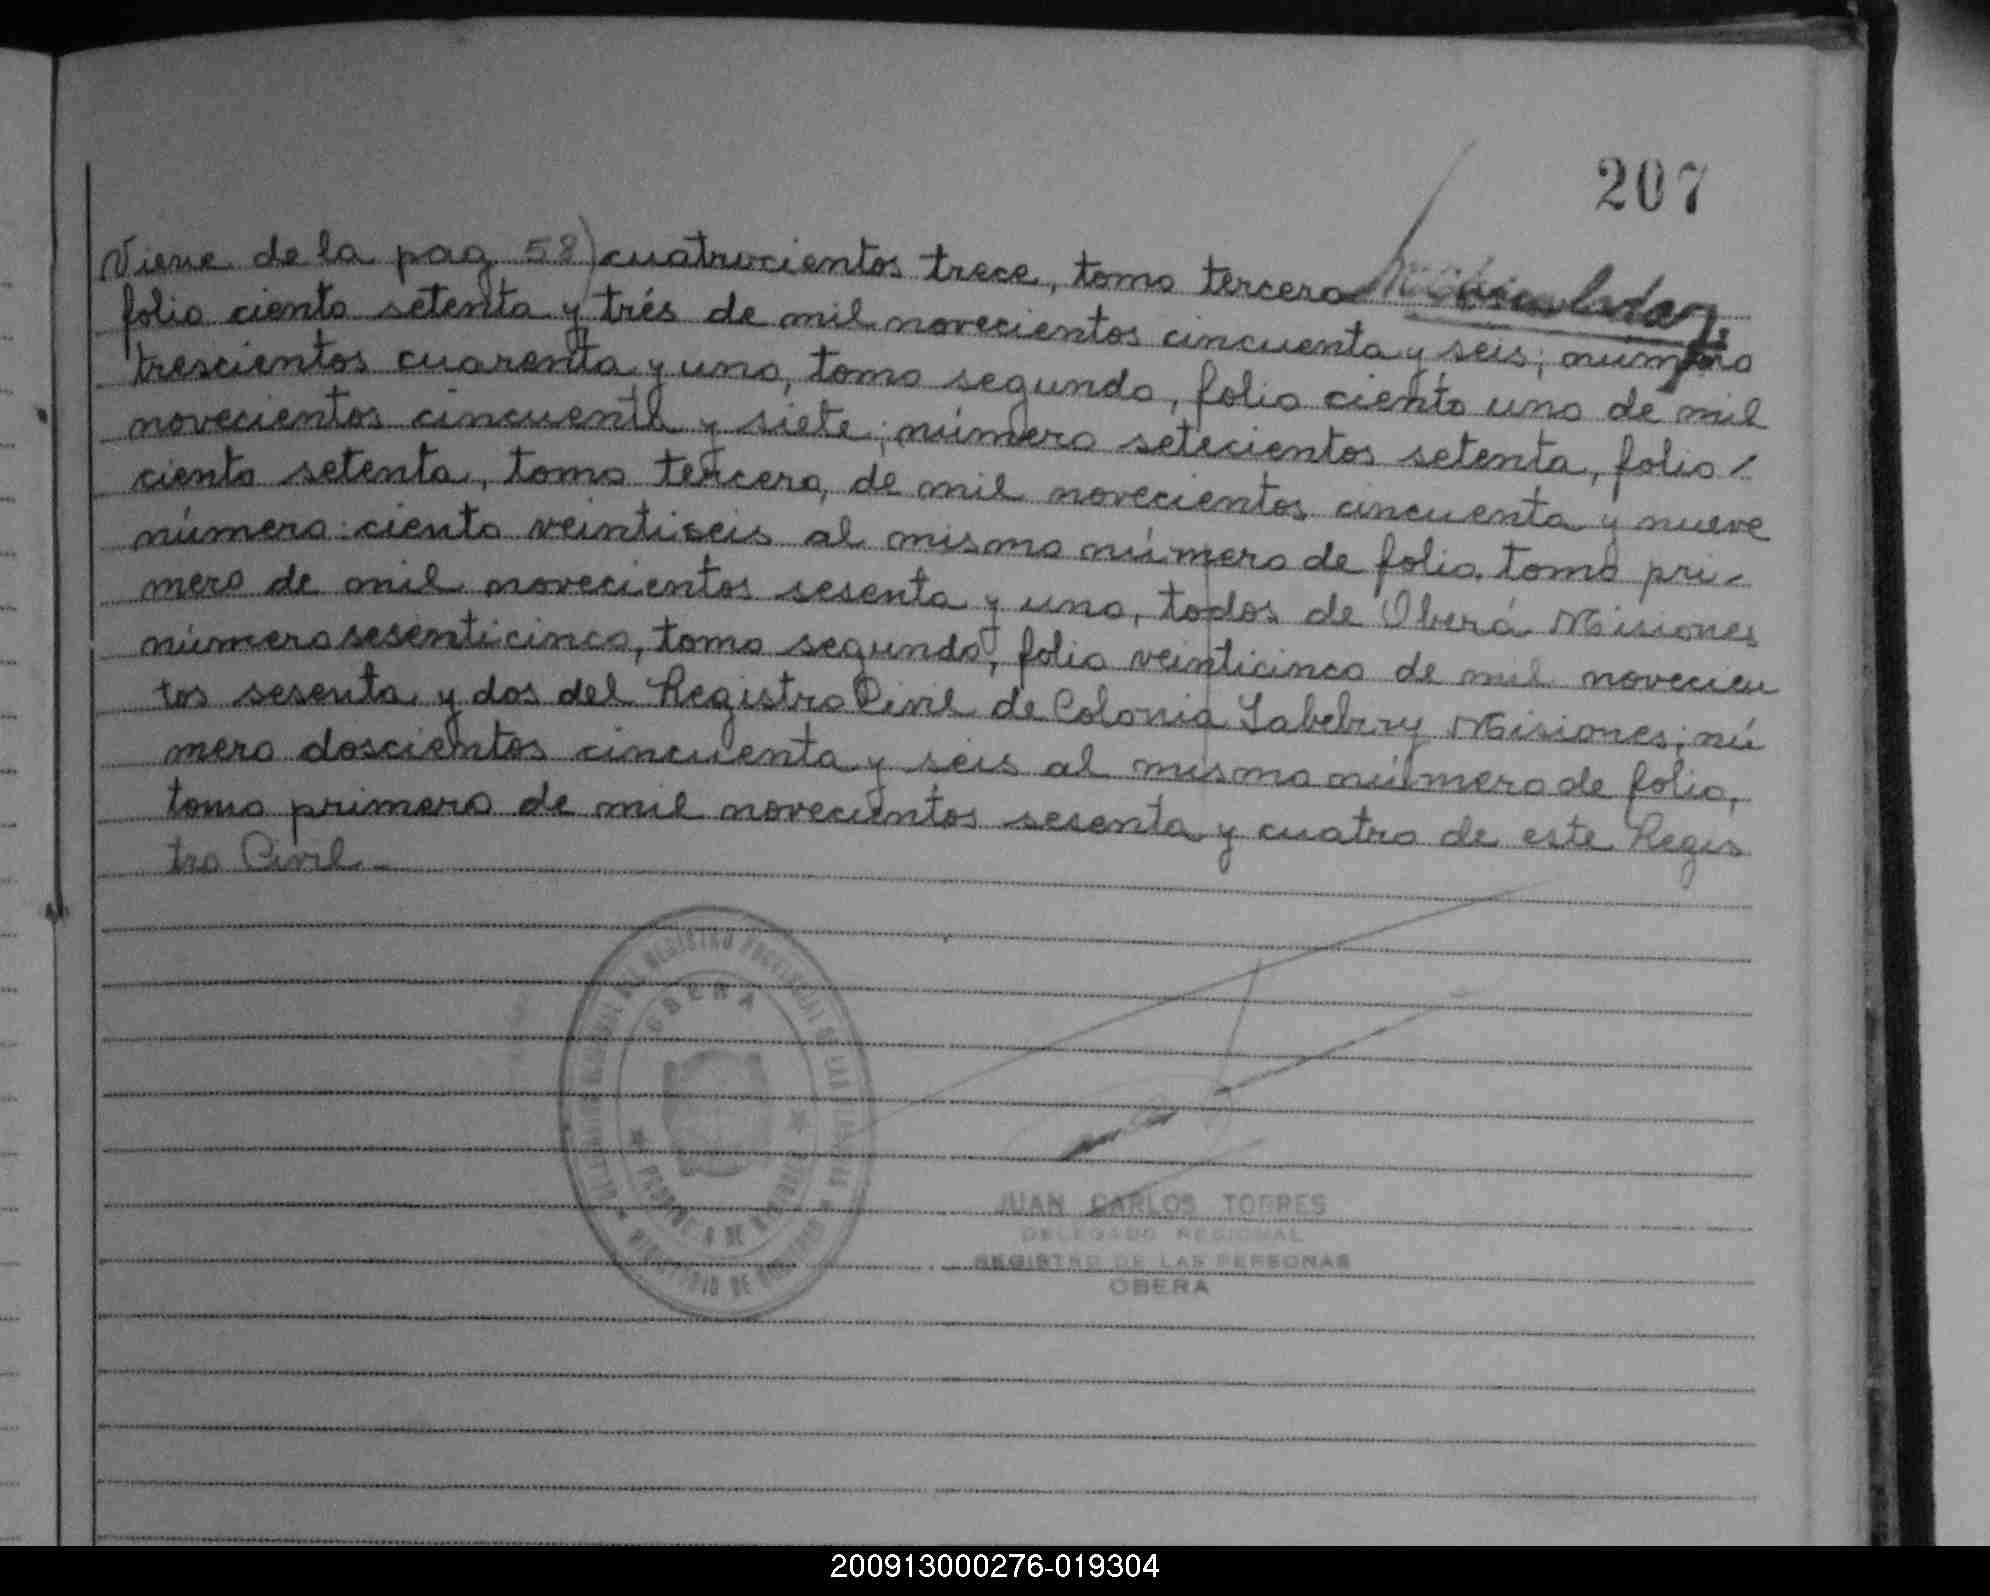 207
Viene de la pag 58) cuatrocientos trece, tomo tercero
folio ciento setenta y trés de mil novecientos cincuenta y seis; número
trescientos cuarenta y uno, tomo segundo, folio ciento uno de mil
novecientos cincuenta y siete; número setecientos setenta, folio /
ciento setenta, tomo tercero, de mil novecientos cincuenta y nueve
número: ciento veintiseis al mismo número de folio, tomo pri-
mero de mil novecientos sesenta y uno, todos de Oberá Misiones
número sesenticinco, tomo segundo, folio veinticinco de mil novecien
tos sesenta y dos del Registro Civil de Colonia Yabebiry Misiones; nú
mero doscientos cincuenta y seis al mismo número de folio,
tomo primero de mil novecientos sesenta y cuatro de este Regis
tro Civil.-
OBERA
JUAN CARLOS TORRES
DELEGADO REGIONAL
REGISTRO DE LAS PERSONAS
OBERA
200913000276-019304